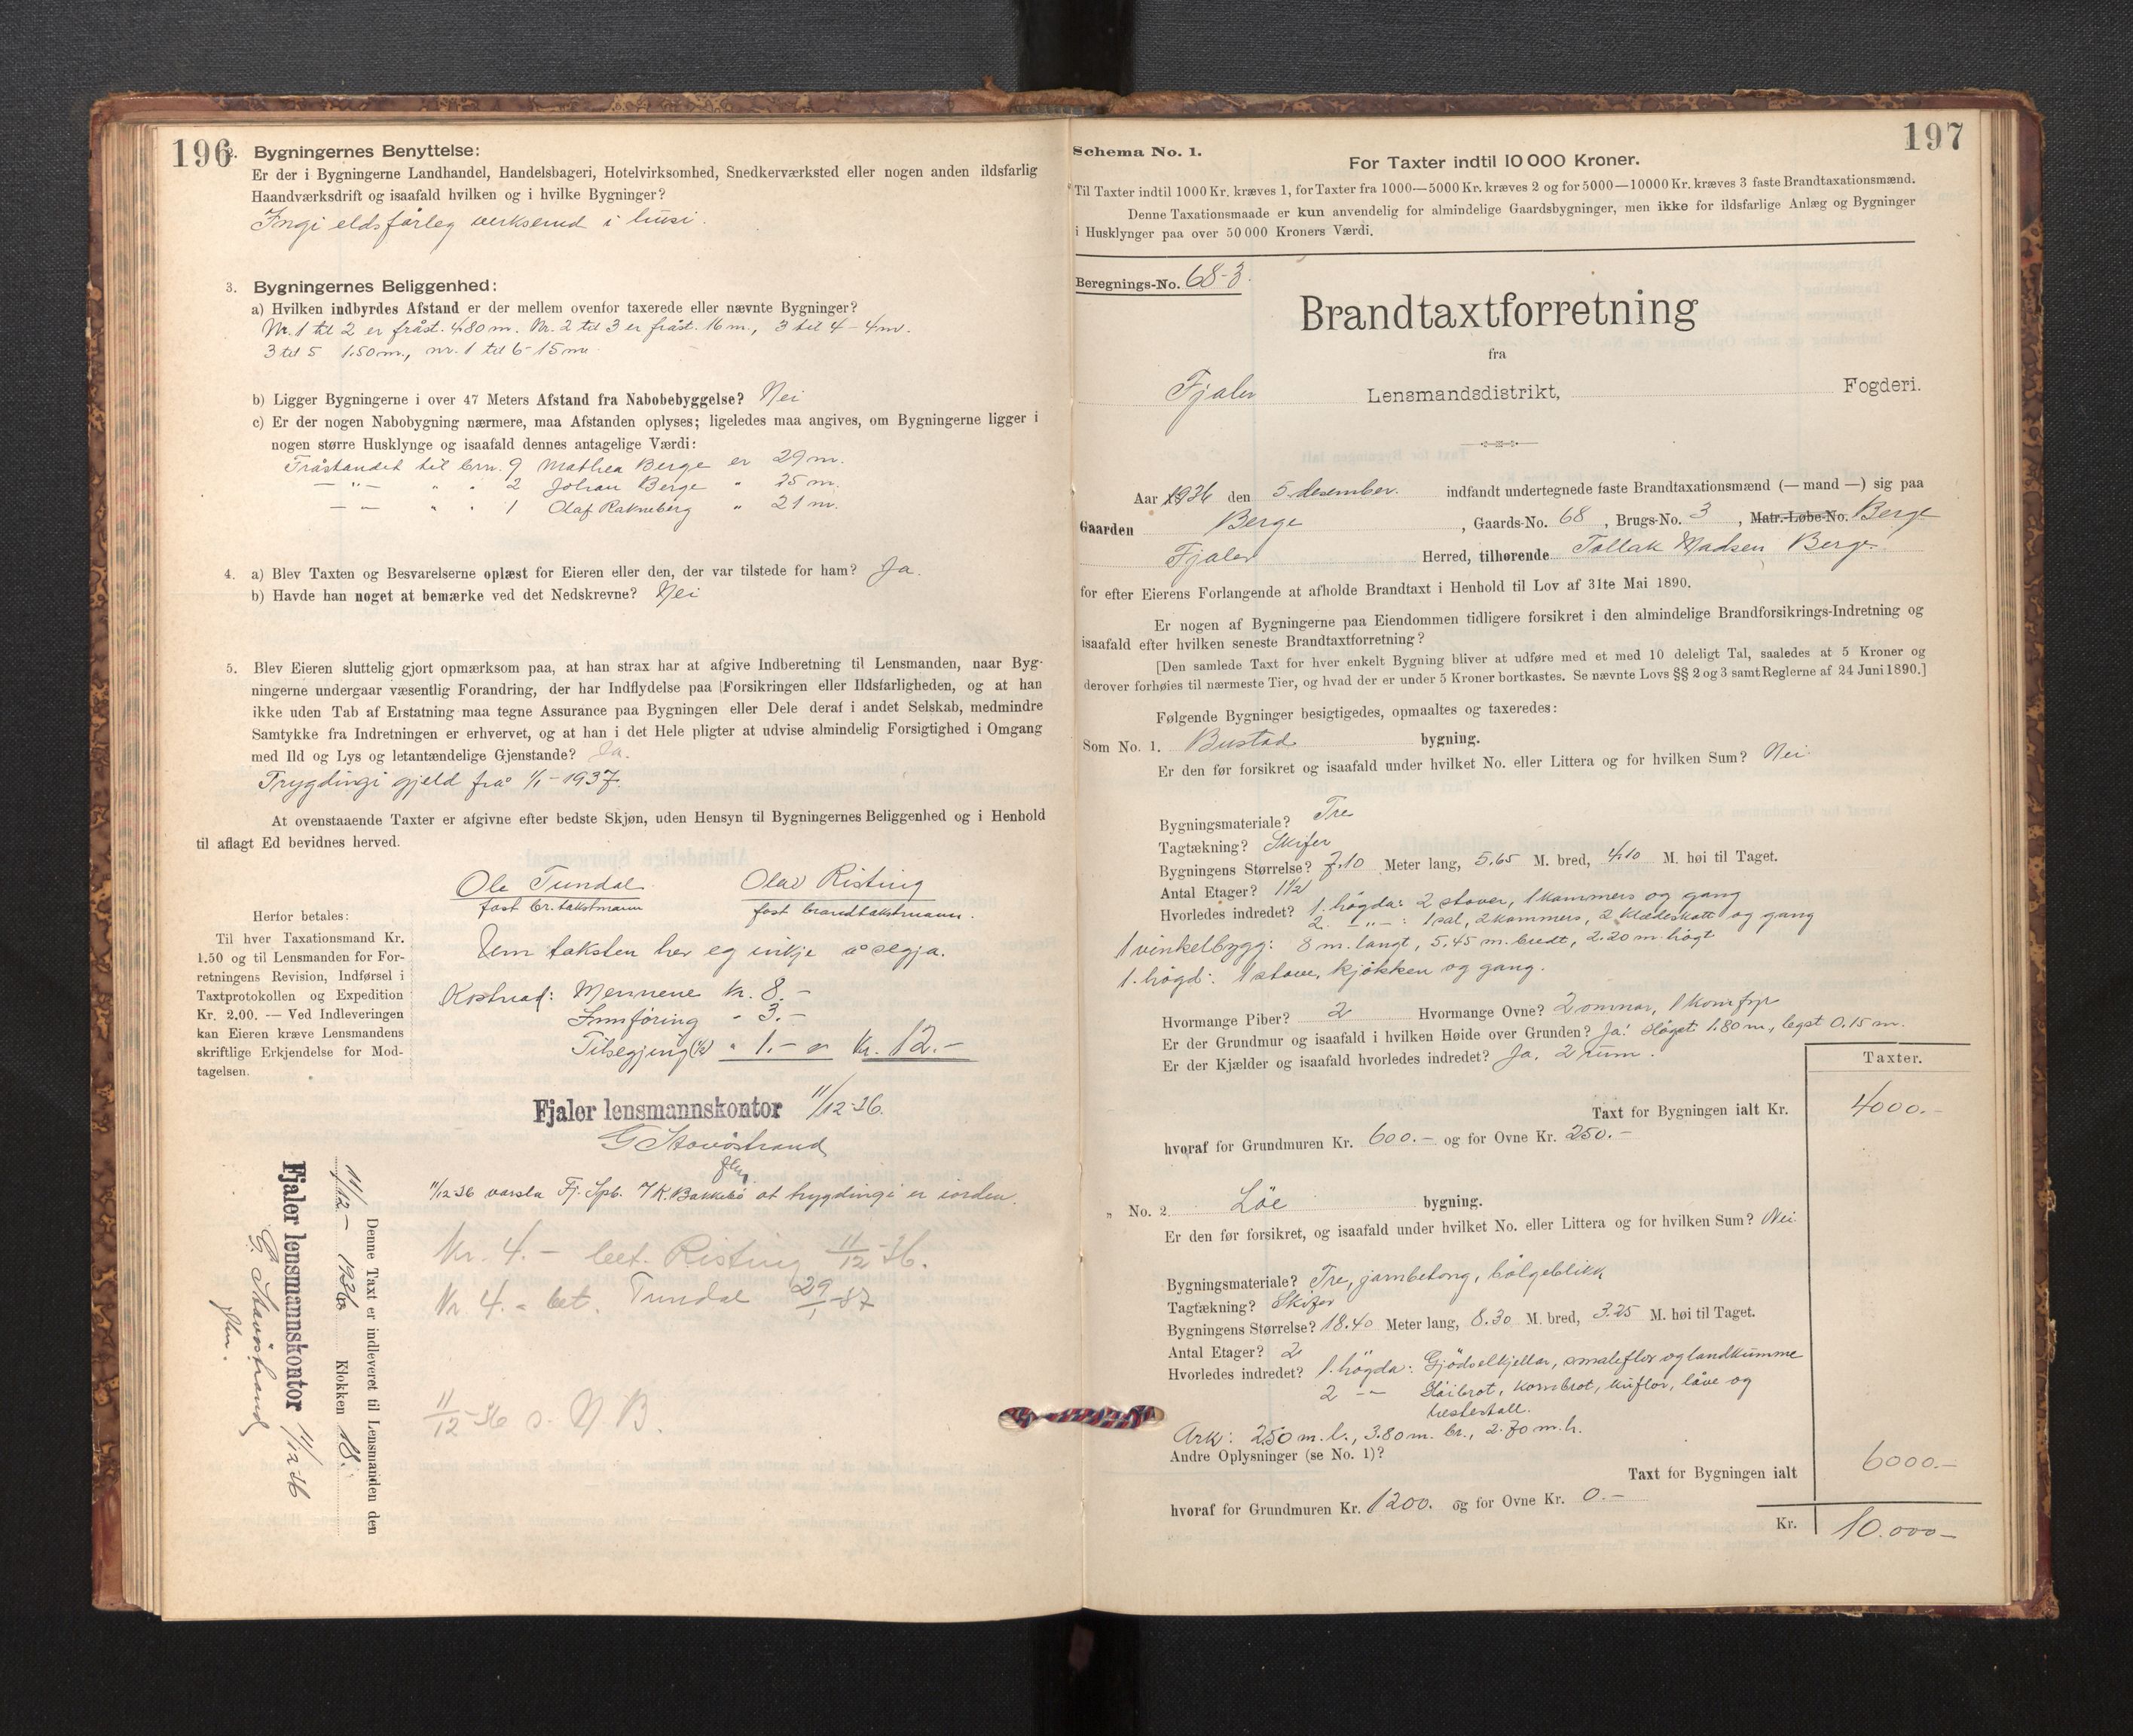 196
2. Bygningernes Benyttelse:
Er der i Bygningerne Landhandel, Handelsbageri, Hotelvirksomhed, Snedkerværksted eller nogen anden ildsfarlig
Haandværksdrift og isaafald hvilken og i hvilke Bygninger?
Ingi eldsfårleg verksemd i husi.
3. Bygningernes Beliggenhed:
a) Hvilken indbyrdes Afstand er der mellem ovenfor taxerede eller nævnte Bygninger?
Nr. 1 til 2 er fråst. 4.80 m. Nr. 2 til 3 er fråst. 16 m., 3 til 4 - 4 m.
3 til 5 1.50 m., nr. 1 til 6 - 15 m.
b) Ligger Bygningerne i over 47 Meters Afstand fra Nabobebyggelse? Nei
c) Er der nogen Nabobygning nærmere, maa Afstanden oplyses; ligeledes maa angives, om Bygningerne ligger i
nogen større Husklynge og isaafald dennes antagelige Værdi:
Fråstandet til brn. 9 Mathea Berge er 29 m.
— " — " " 2 Johan Berge " 25 m.
— — " " 1 Olaf Rakneberg " 21 m.
4. a) Blev Taxten og Besvarelserne oplæst for Eieren eller den, der var tilstede for ham? Ja.
b) Havde han noget at bemærke ved det Nedskrevne? Nei
5. Blev Eieren sluttelig gjort opmærksom paa, at han strax har at afgive Indberetning til Lensmanden, naar Byg-
ningerne undergaar væsentlig Forandring, der har Indflydelse paa Forsikringen eller Ildsfarligheden, og at han
ikke uden Tab af Erstatning maa tegne Assurance paa Bygningen eller Dele deraf i andet Selskab, medmindre
Samtykke fra Indretningen er erhvervet, og at han i det Hele pligter at udvise almindelig Forsigtighed i Omgang
med Ild og Lys og letantændelige Gjenstande? Ja.
Trygdingi gjeld frå 1/1-1937.
At ovenstaaende Taxter er afgivne efter bedste Skjøn, uden Hensyn til Bygningernes Beliggenhed og i Henhold
til aflagt Ed bevidnes herved.
Ole Tundal Olav Risting
fast br.takstmann fast brandtakstmann.
Herfor betales:
Til hver Taxationsmand Kr.
1.50 og til Lensmanden for For-
retningens Revision, Indførsel i
Taxtprotokollen og Expedition
Kr. 2.00. — Ved Indleveringen
kan Eieren kræve Lensmandens
skriftlige Erkjendelse for Mod-
tagelsen.
Um taksten hev eg inkje å segja.
Kostnad: Mennene kr. 8.-
Innføring " 3.-
Tilsegjing (1/2) " 1.- = Kr. 12.-
Fjaler lensmannskontor 11/12-36.
G Stavöstrand
ftm.
11/12-36 varsla Fj. Spb. v/ K. Bakkebø at trygdingi er iorden.
Kr. 4.- bet. Risting 11/12-36.
Kr. 4.- bet. Tundal 29/1-37
11/12-36 s. N. B.
Denne Taxt er indleveret til Lensmanden den
11/12.- 1936 Klokken 18.
Fjaler lensmannskontor 11/12 36
G. Stavöstrand
ftm.
197
Schema No. 1.
For Taxter indtil 10 000 Kroner.
Til Taxter indtil 1000 Kr. kræves 1, for Taxter fra 1000—5000 Kr. kræves 2 og for 5000—10000 Kr. kræves 3 faste Brandtaxationsmænd.
Denne Taxationsmaade er kun anvendelig for almindelige Gaardsbygninger, men ikke for ildsfarlige Anlæg og Bygninger
i Husklynger paa over 50 000 Kroners Værdi.
Beregnings-No. 68-3.
Brandtaxtforretning
fra
Fjaler Lensmandsdistrikt, Fogderi.
Aar 1936 den 5. desember. indfandt undertegnede faste Brandtaxationsmænd (— mand —) sig paa
Gaarden Berge, Gaards-No. 68, Brugs-No. 3, Matr.-Løbe-No. Berge
Fjaler Herred, tilhørende Tollak Madsen Berge.
for efter Eierens Forlangende at afholde Brandtaxt i Henhold til Lov af 31te Mai 1890.
Er nogen af Bygningerne paa Eiendommen tidligere forsikret i den almindelige Brandforsikrings-Indretning og
isaafald efter hvilken seneste Brandtaxtforretning?
[Den samlede Taxt for hver enkelt Bygning bliver at udføre med et med 10 deleligt Tal, saaledes at 5 Kroner og
derover forhøies til nærmeste Tier, og hvad der er under 5 Kroner bortkastes. Se nævnte Lovs §§ 2 og 3 samt Reglerne af 24 Juni 1890.]
Følgende Bygninger besigtigedes, opmaaltes og taxeredes:
Som No. 1. Bustad bygning.
Er den før forsikret og isaafald under hvilket No. eller Littera og for hvilken Sum? Nei
Bygningsmateriale? Tre
Tagtækning? Skifer
Bygningens Størrelse? 7.10 Meter lang, 5.65 M. bred, 4.10 M. høi til Taget.
Antal Etager? 1 1/2
Hvorledes indredet? 1. högda: 2 stover, 1 kammers og gang
2. — " — : 1 sal, 2 kammers, 2 klædeskott og gang
1 vinkelbygg: 8 m. langt, 5.45 m. bredt, 2.20 m. högt
1. högd: 1 stove, kjökken og gang.
Hvormange Piber? 2 Hvormange Ovne? 2 omnar, 1 komfyr
Er der Grundmur og isaafald i hvilken Høide over Grunden? Ja! Högst 1.80 m, lægst 0.15 m.
Er der Kjælder og isaafald hvorledes indredet? Ja, 2 rum.
Taxter.
Taxt for Bygningen ialt Kr. 4000.-
hvoraf for Grundmuren Kr. 600.- og for Ovne Kr. 250.-
„ No. 2. Löe bygning.
Er den før forsikret, og isaafald under hvilket No. eller Littera og for hvilken Sum? Nei
Bygningsmateriale? Tre, jarnbetong, bölgeblikk
Tagtækning? Skifer
Bygningens Størrelse? 18.40 Meter lang, 8.30 M. bred, 3.25 M. høi til Taget.
Antal Etager? 2
Hvorledes indredet? 1. högda: Gjödselkjellar, smaleflor og landkumme
2 — — Höibrot, kornbrot, kuflor, låve og
hestestall.
Ark: 2.50 m. l., 3.80 m. br., 2.70 m. h.
Andre Oplysninger (se No. 1)?
Taxt for Bygningen ialt 6000.-
hvoraf for Grundmuren Kr. 1200. og for Ovne Kr. 0.-
Kr. 10.000-